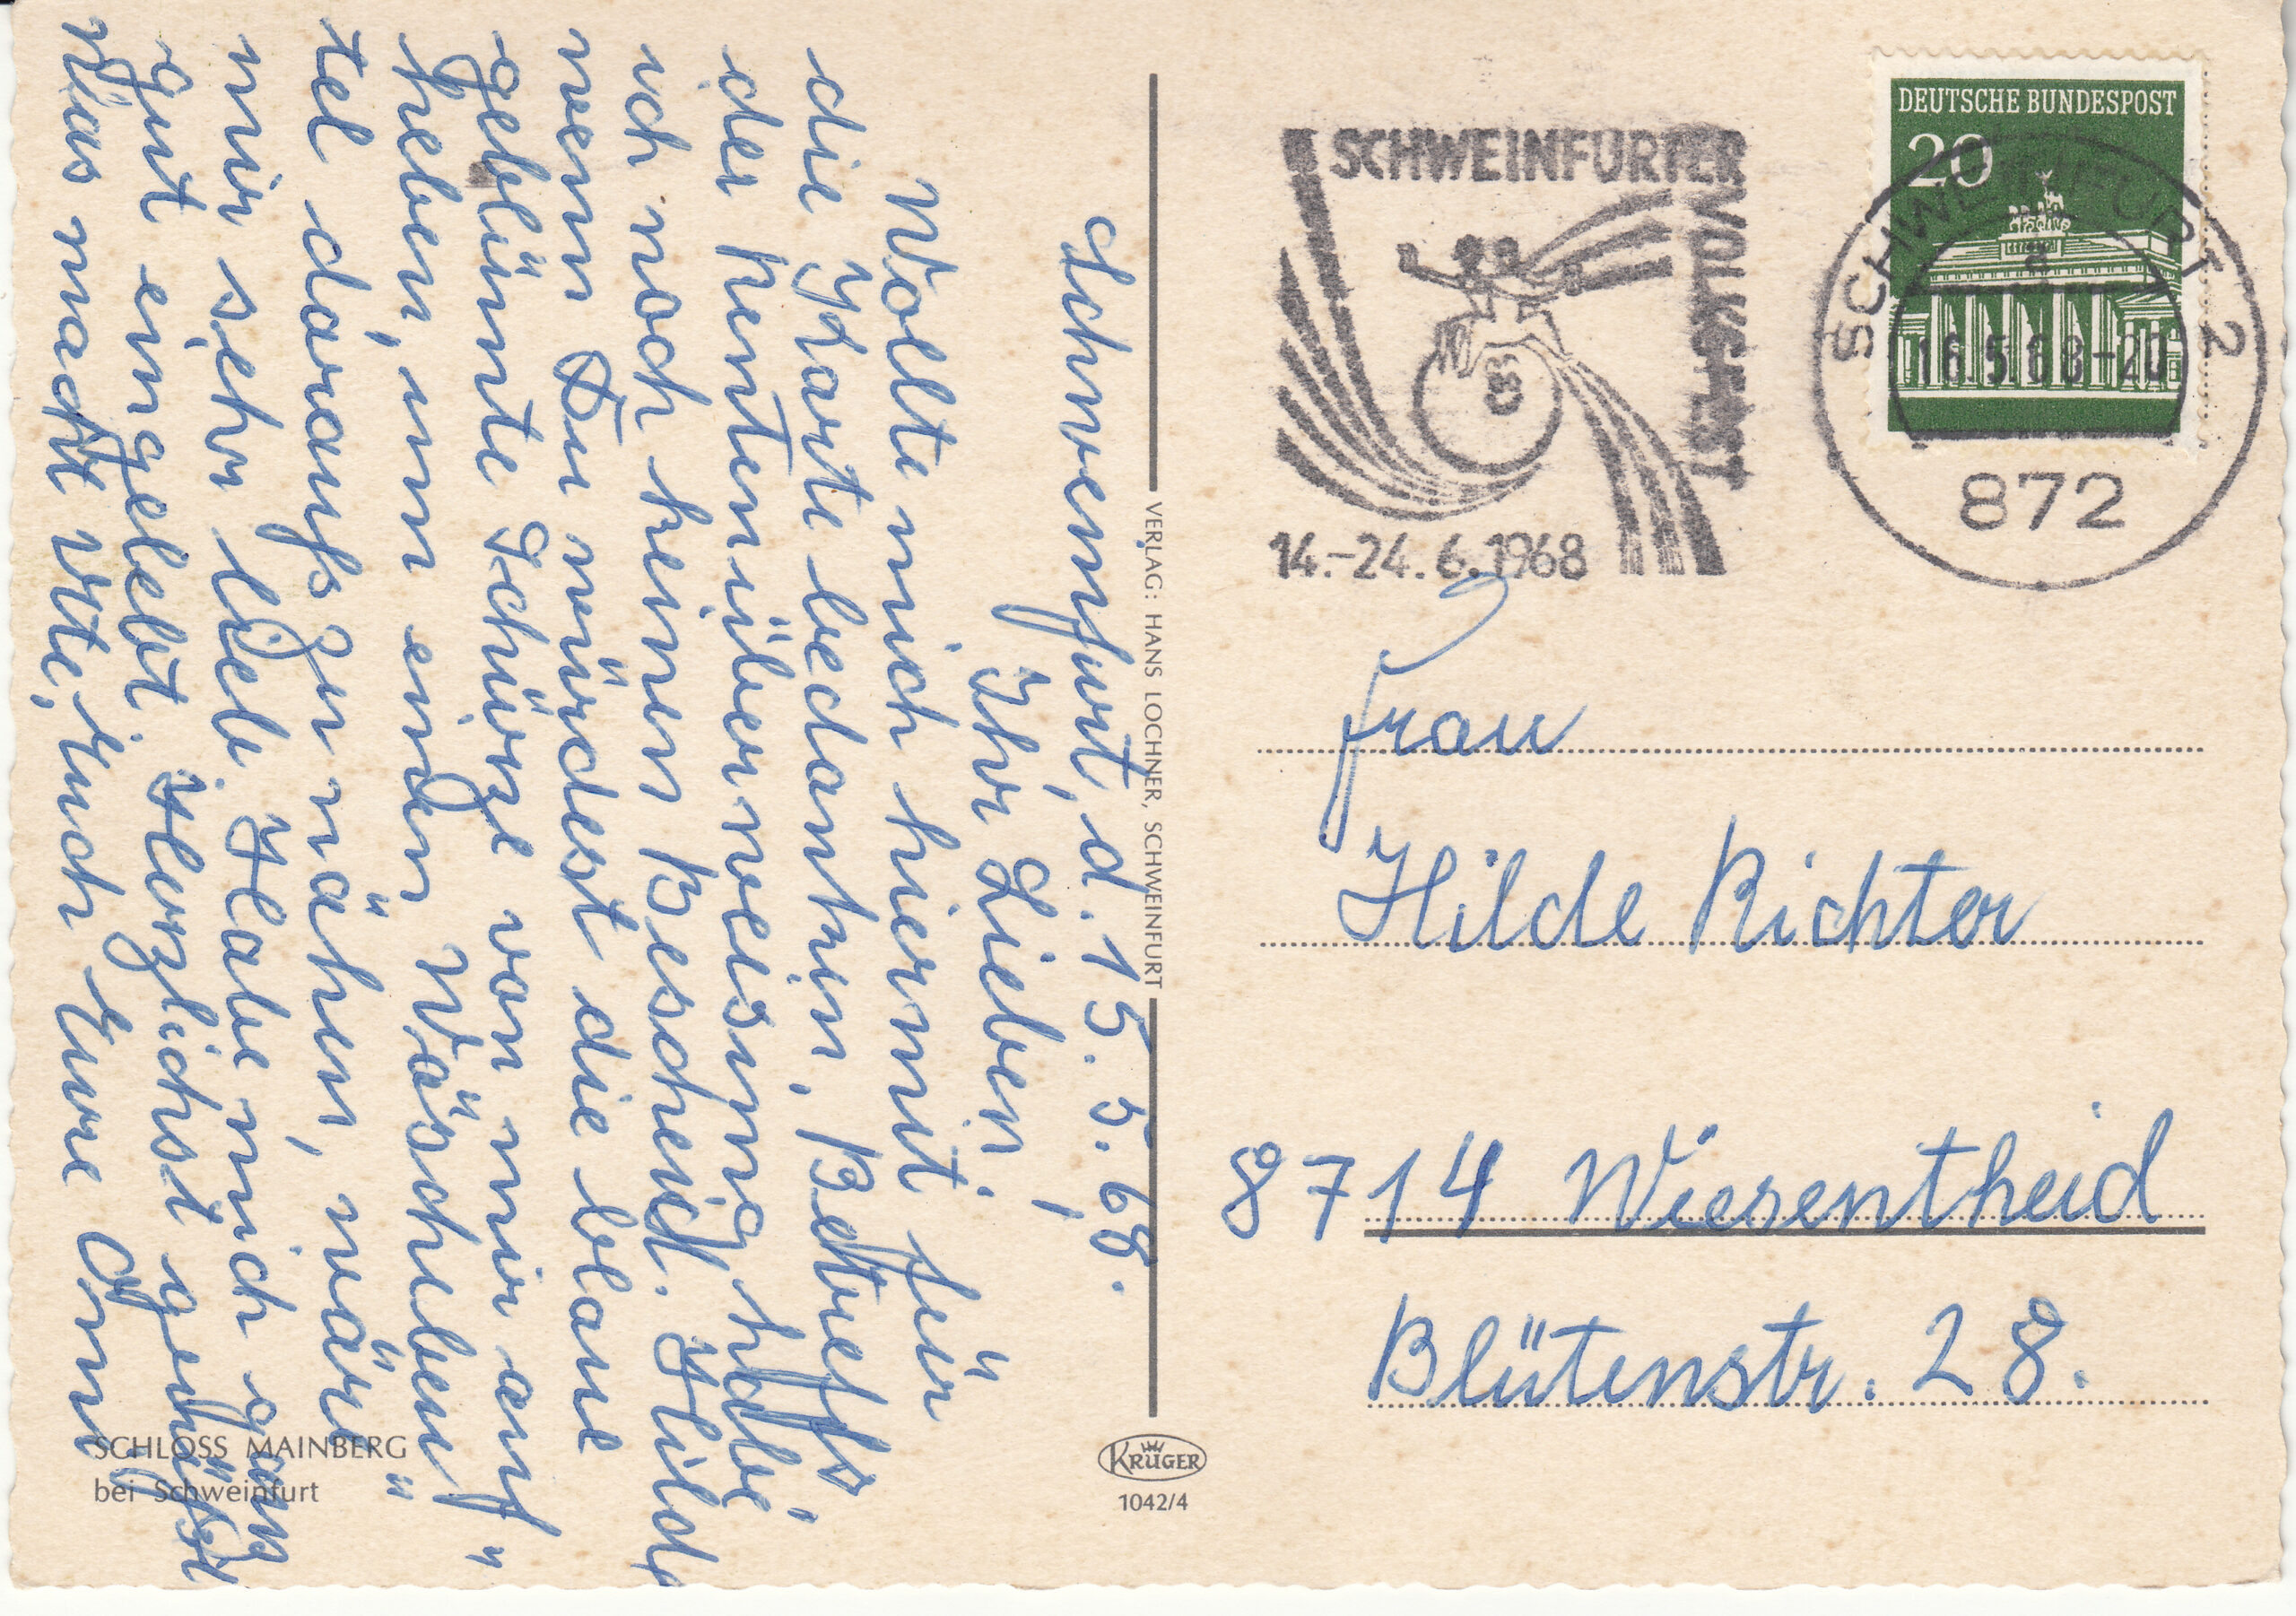 Schweinfurt, d. 15. 5. 68.
Ihr Lieben,
Wollte mich hiermit für
die Karte bedanken. Betreffs
der Rentenüberweisung habe
ich noch keinen Bescheid. Hilde
wenn Du würdest die blaue
geblümte Schürze von mir auf-
heben, um einen Wäschebeu-
tel daraufs zu nähen, wäre
mir sehr lieb. Habe mich ganz
gut eingelebt. Herzlichst gegrüßt
Was macht Ute, Euch Eure Omi
SCHLOSS MAINBERG
bei Schweinfurt
VERLAG: HANS LOCHNER, SCHWEINFURT
KRÜGER
1042/4
SCHWEINFURTER
VOLKSFEST
68
14.-24. 6. 1968
DEUTSCHE BUNDESPOST
20
SCHWEINFURT 2
a
16.5.68-20
872
Frau
Hilde Richter
8714 Wiesentheid
Blütenstr. 28.